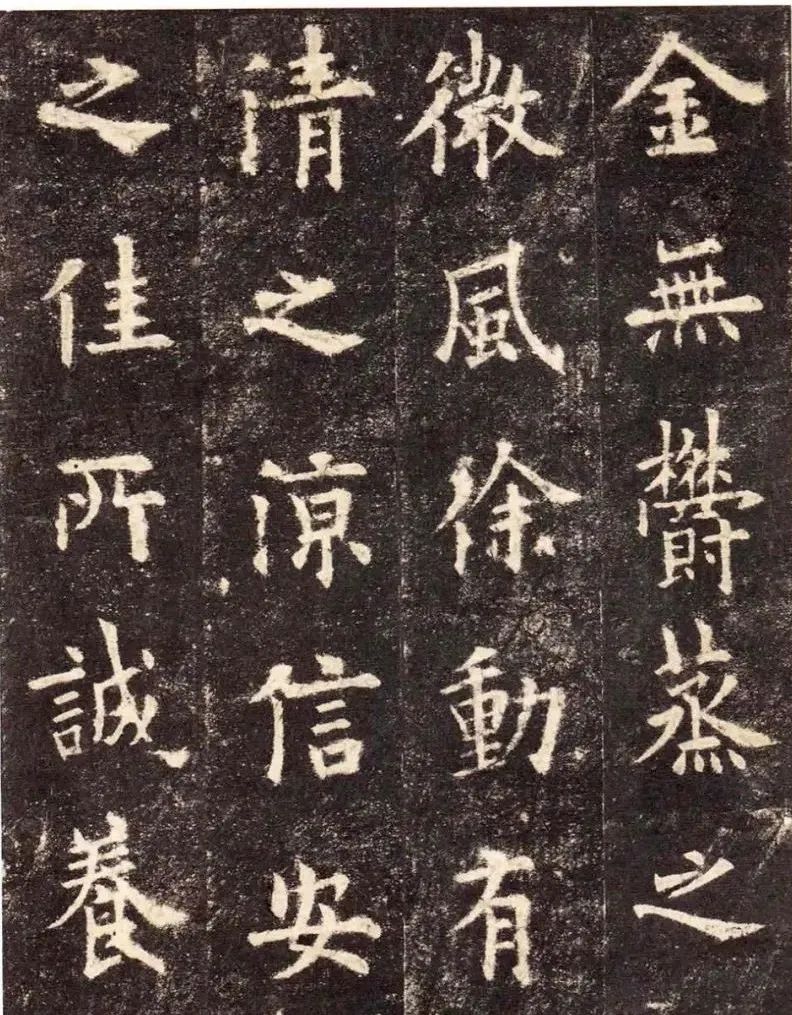 金無欝蒸之
微風徐動有
清之涼信安
之佳所誠養